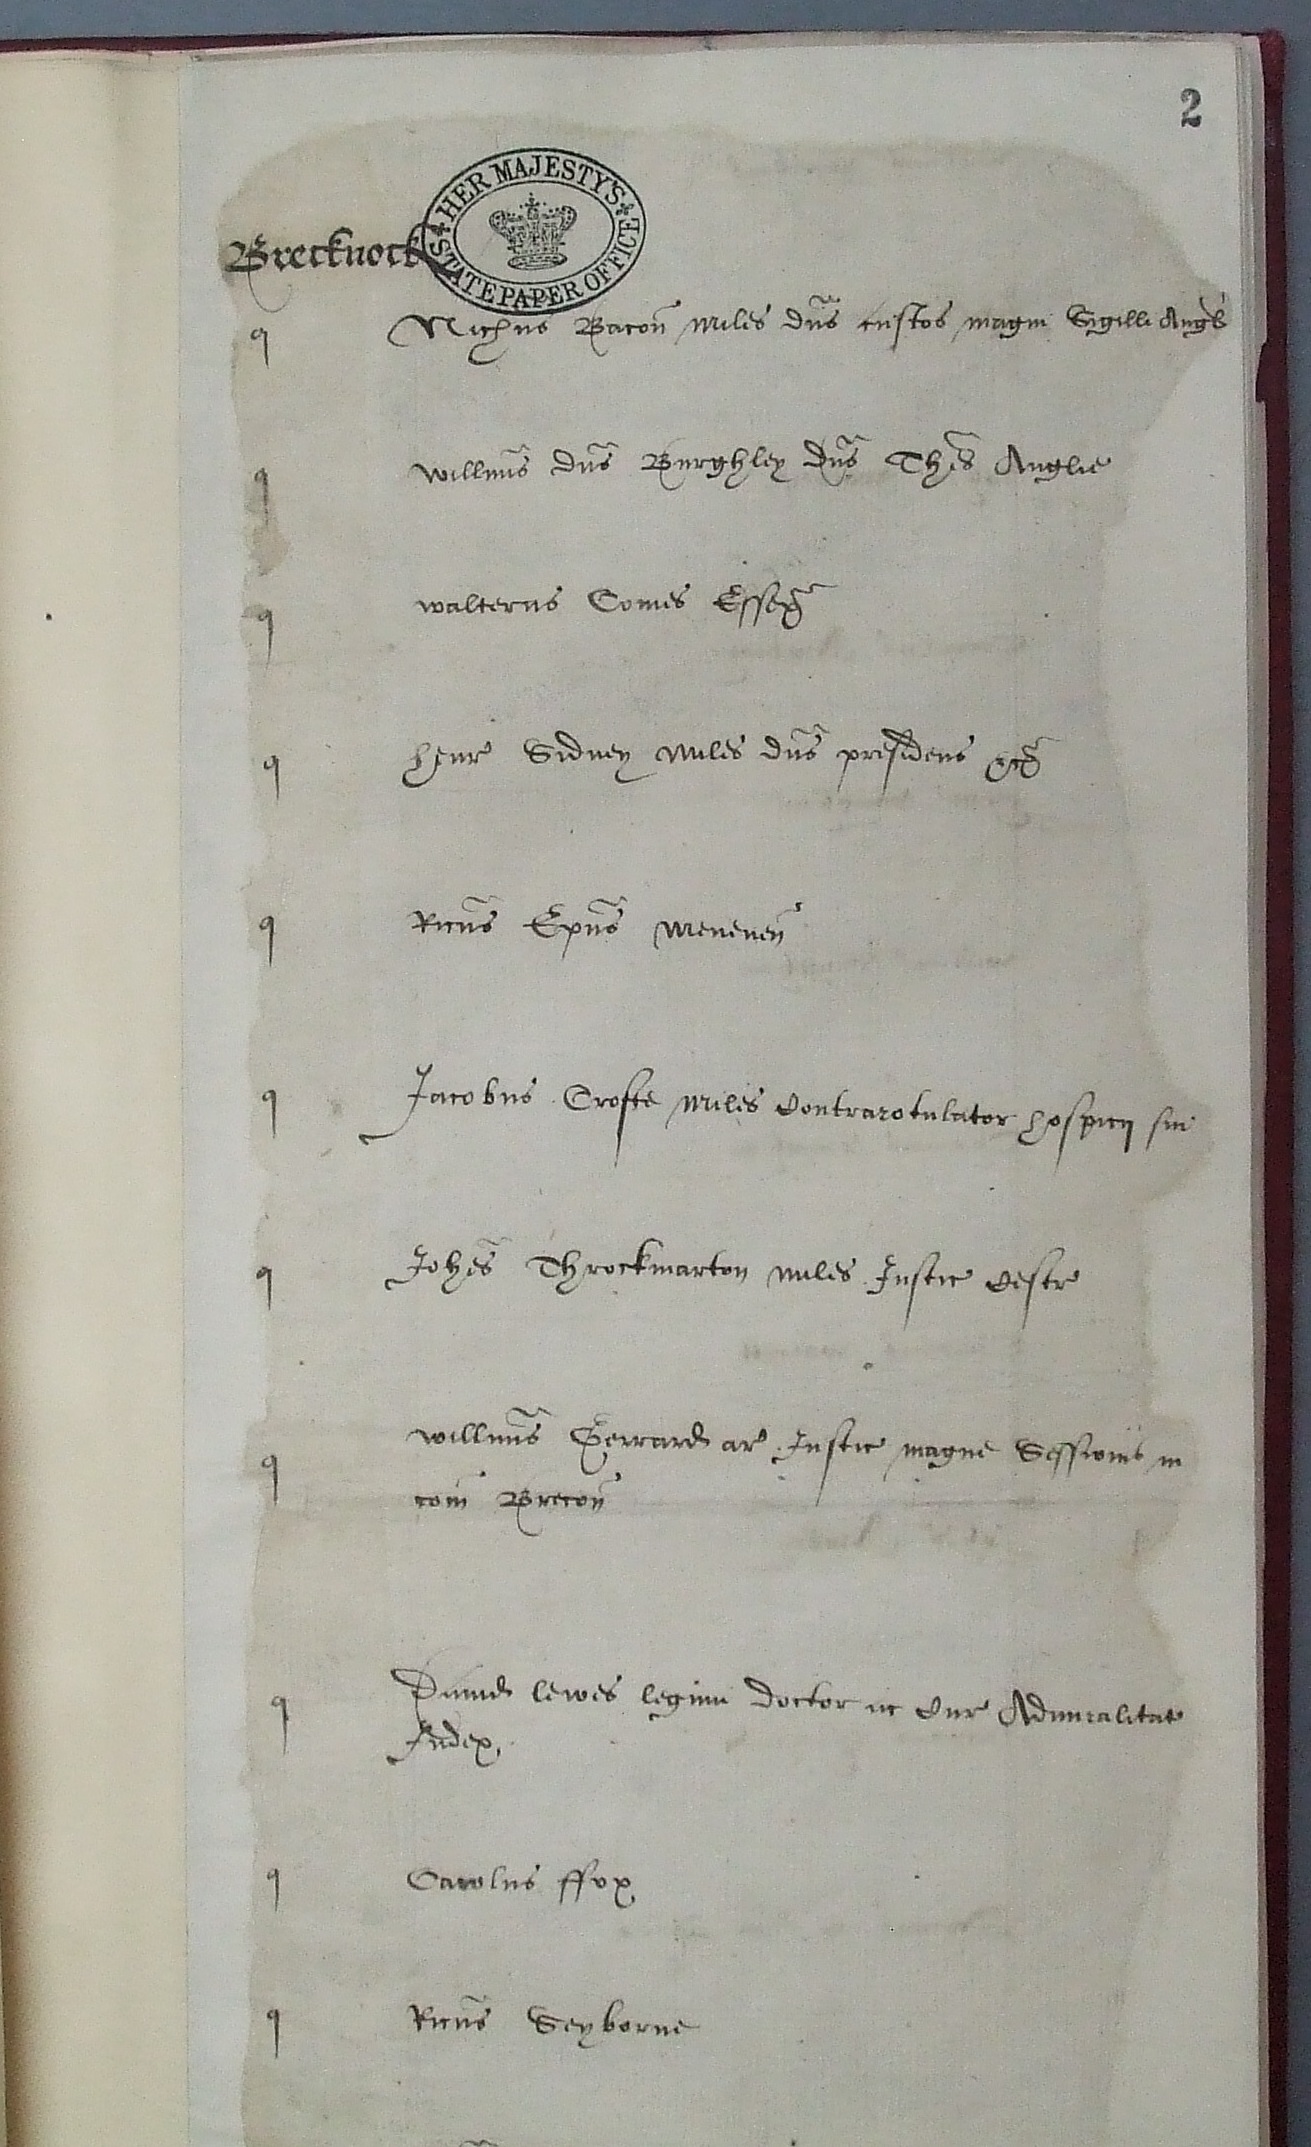 2
HER MAJESTY'S STATE PAPER OFFICE
Brecknock
q Nichus Bacon miles dns custos magni Sigilli Angl
q willmus dns Burghley dns Thes Anglie
q walterus Comes Essex
q henr Sidney miles dns presidens &c
q Ricus Epus meneven
q Jacobus Crofte miles Contrarotulator hospicij sui
q Johes Throckmarton miles Justic Cestr
q willmus Gerrard ar Justic magne Sessionis in
com Brecon
q David lewes legum doctor ac Cur Admiralitat
Judex.
q Carolus ffox
q Ricus Seyborne